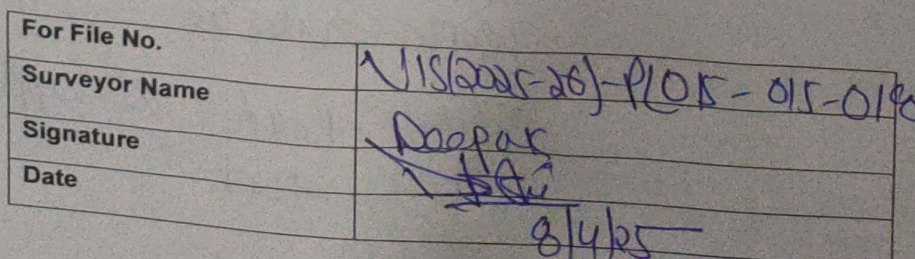 For File No. VIS(2025-26)-PL015-015-018
Surveyor Name Deepak
Signature
Date 8/4/25